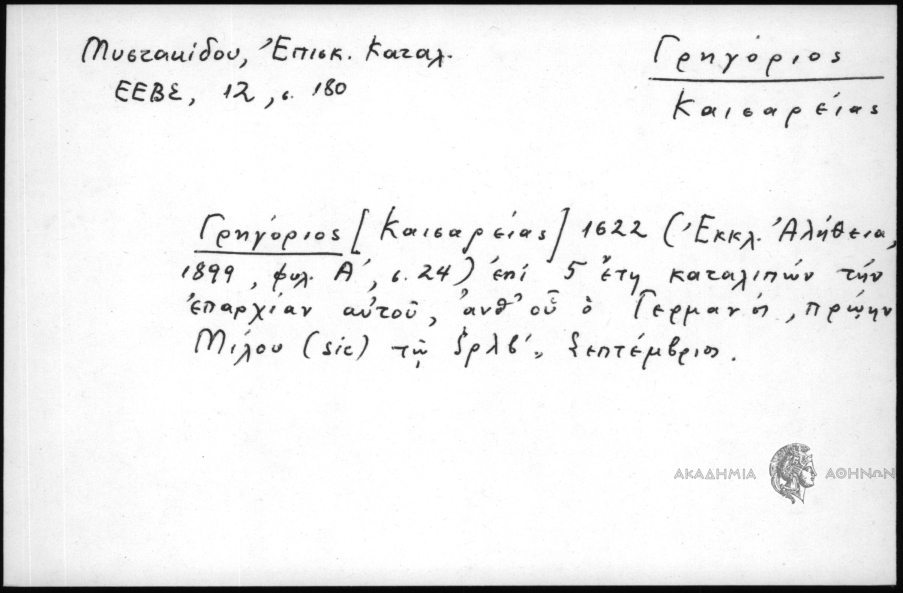 Μυστακίδου, Ἐπισκ. Καταλ.
ΕΕΒΣ, 12, σ. 180
Γρηγόριος
Καισαρείας
Γρηγόριος [Καισαρείας] 1622 (Ἐκκλ. Ἀλήθεια,
1899, φυλ. Α΄, σ. 24) ἐπί 5 ἔτη καταλιπών τήν
ἐπαρχίαν αὐτοῦ, ἀνθ' οὗ ὁ Γερμανός, πρώην
Μήλου (sic) τῷ ζρλβ΄, Σεπτέμβριος.
ΑΚΑΔΗΜΙΑ ΑΘΗΝΩΝ